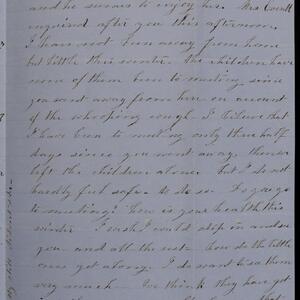 and he seems to enjoy his. Mrs
inquired after you this afternoon.
I have not been away from home
but little this winter. the children have
none of them been to meeting since
you went away from here on account
of the whooping cough. I believe that
I have been to meeting only three half
days since you went away. there
left the children alone but I do not
hardly feel safe to do so. Do you go
to meeting? how is your health this
winter I wish I could step in and see
you and all the rest. how do the little
ones get along. I do want to see them
very much we think they have got